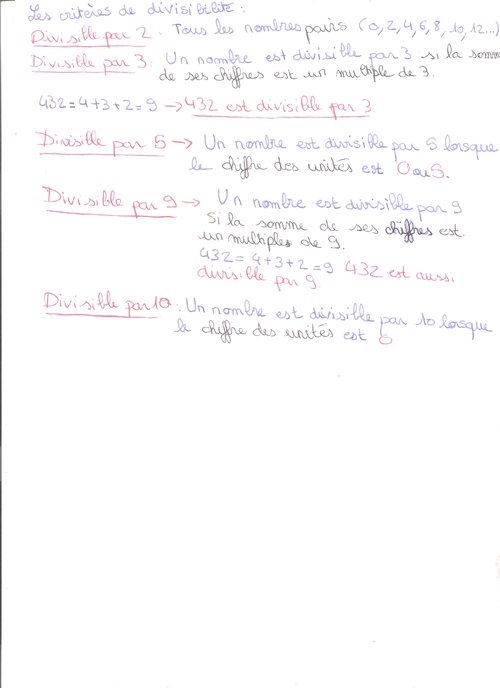 Les critères de divisibilité :
Divisible par 2. Tous les nombres pairs (0,2,4,6,8,10,12...)
Divisible par 3: Un nombre est divisible par 3 si la somme
de ses chiffres est un multiple de 3.
432=4+3+2=9 → 432 est divisible par 3
Divisible par 5 → Un nombre est divisible par 5 lorsque
le chiffre des unités est 0 ou 5.
Divisible par 9 → Un nombre est divisible par 9
Si la somme de ses chiffres est
un multiple de 9.
432 = 4+3+2 = 9 432 est aussi
divisible par 9
Divisible par 10 : Un nombre est divisible par 10 lorsque
le chiffre des unités est 0